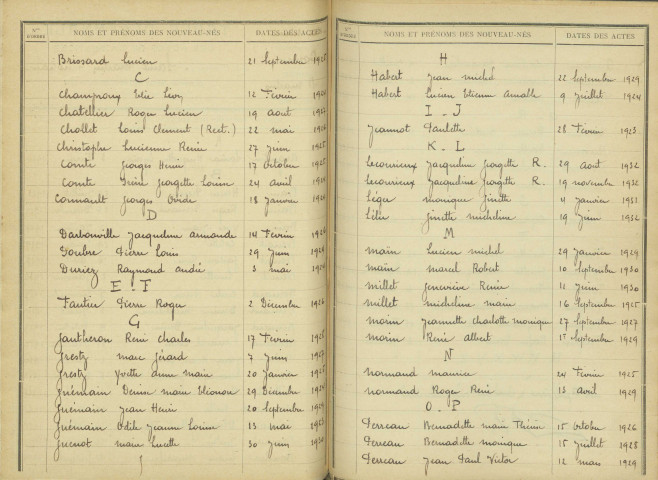 Nos D'ORDRE NOMS ET PRÉNOMS DES NOUVEAU-NÉS DATES DES ACTES
Brissard Lucien 21 Septembre
C
Champroux Elie Léon 12 Février
Chatellier Roger Lucien 19 aout
Chollet Louis Clement (Rect.) 22 mai
Christophe Lucienne Renée 27 juin
Comte Georges Henri 17 octobre
Comte Irène Georgette Louise 24 avril
Cornuault Georges Ovide 18 janvier
D
Darbonville Jacqueline armande 14 Février 1926
Doubre Pierre Louis 29 Juin
Duriez Raymond andré 3 mai
E-F
Fautier Pierre Roger 2 Décembre 1926
G
Gautheron René Charles 17 Février
Gresty marc Gérard 7 Juin
Gresty Yvette anne marie 20 Janvier
Guémain Denise marie Eléonore 29 Décembre
Guémain Jean Henri 20 Septembre
Guémain Odile Jeanne Louise 13 mai
Guenot marie Lucette 30 juin
Nos D'ORDRE NOMS ET PRÉNOMS DES NOUVEAU-NÉS DATES DES ACTES
H
Habert Jean michel 22 Septembre 1929
Habert Lucien Etienne Aimable 9 Juillet 1924
I-J
Jeannot Paulette 28 Février 1923
K-L
Lecouvieux Jacqueline Georgette R. 29 Aout 1932
Lecouvieux Jacqueline Georgette R. 19 novembre 1932
Léger monique Ginette 4 Janvier 1931
Ginette micheline 19 Juin 1932
M
main Lucien michel 29 Janvier 1929
main marcel Robert 10 Septembre 1930
millet Geneviève Renée 11 Juin 1930
millet micheline marie 16 Septembre 1925
morin Jeannette charlotte monique 27 Septembre 1927
morin René albert 1er Septembre 1929
N
normand maurice 24 Février 1925
normand Roger René 13 avril 1929
O-P
Perreau Bernadette marie Thérèse 15 Octobre 1926
Perreau Bernadette monique 15 Juillet 1928
Perreau Jean Paul Victor 12 mars 1929